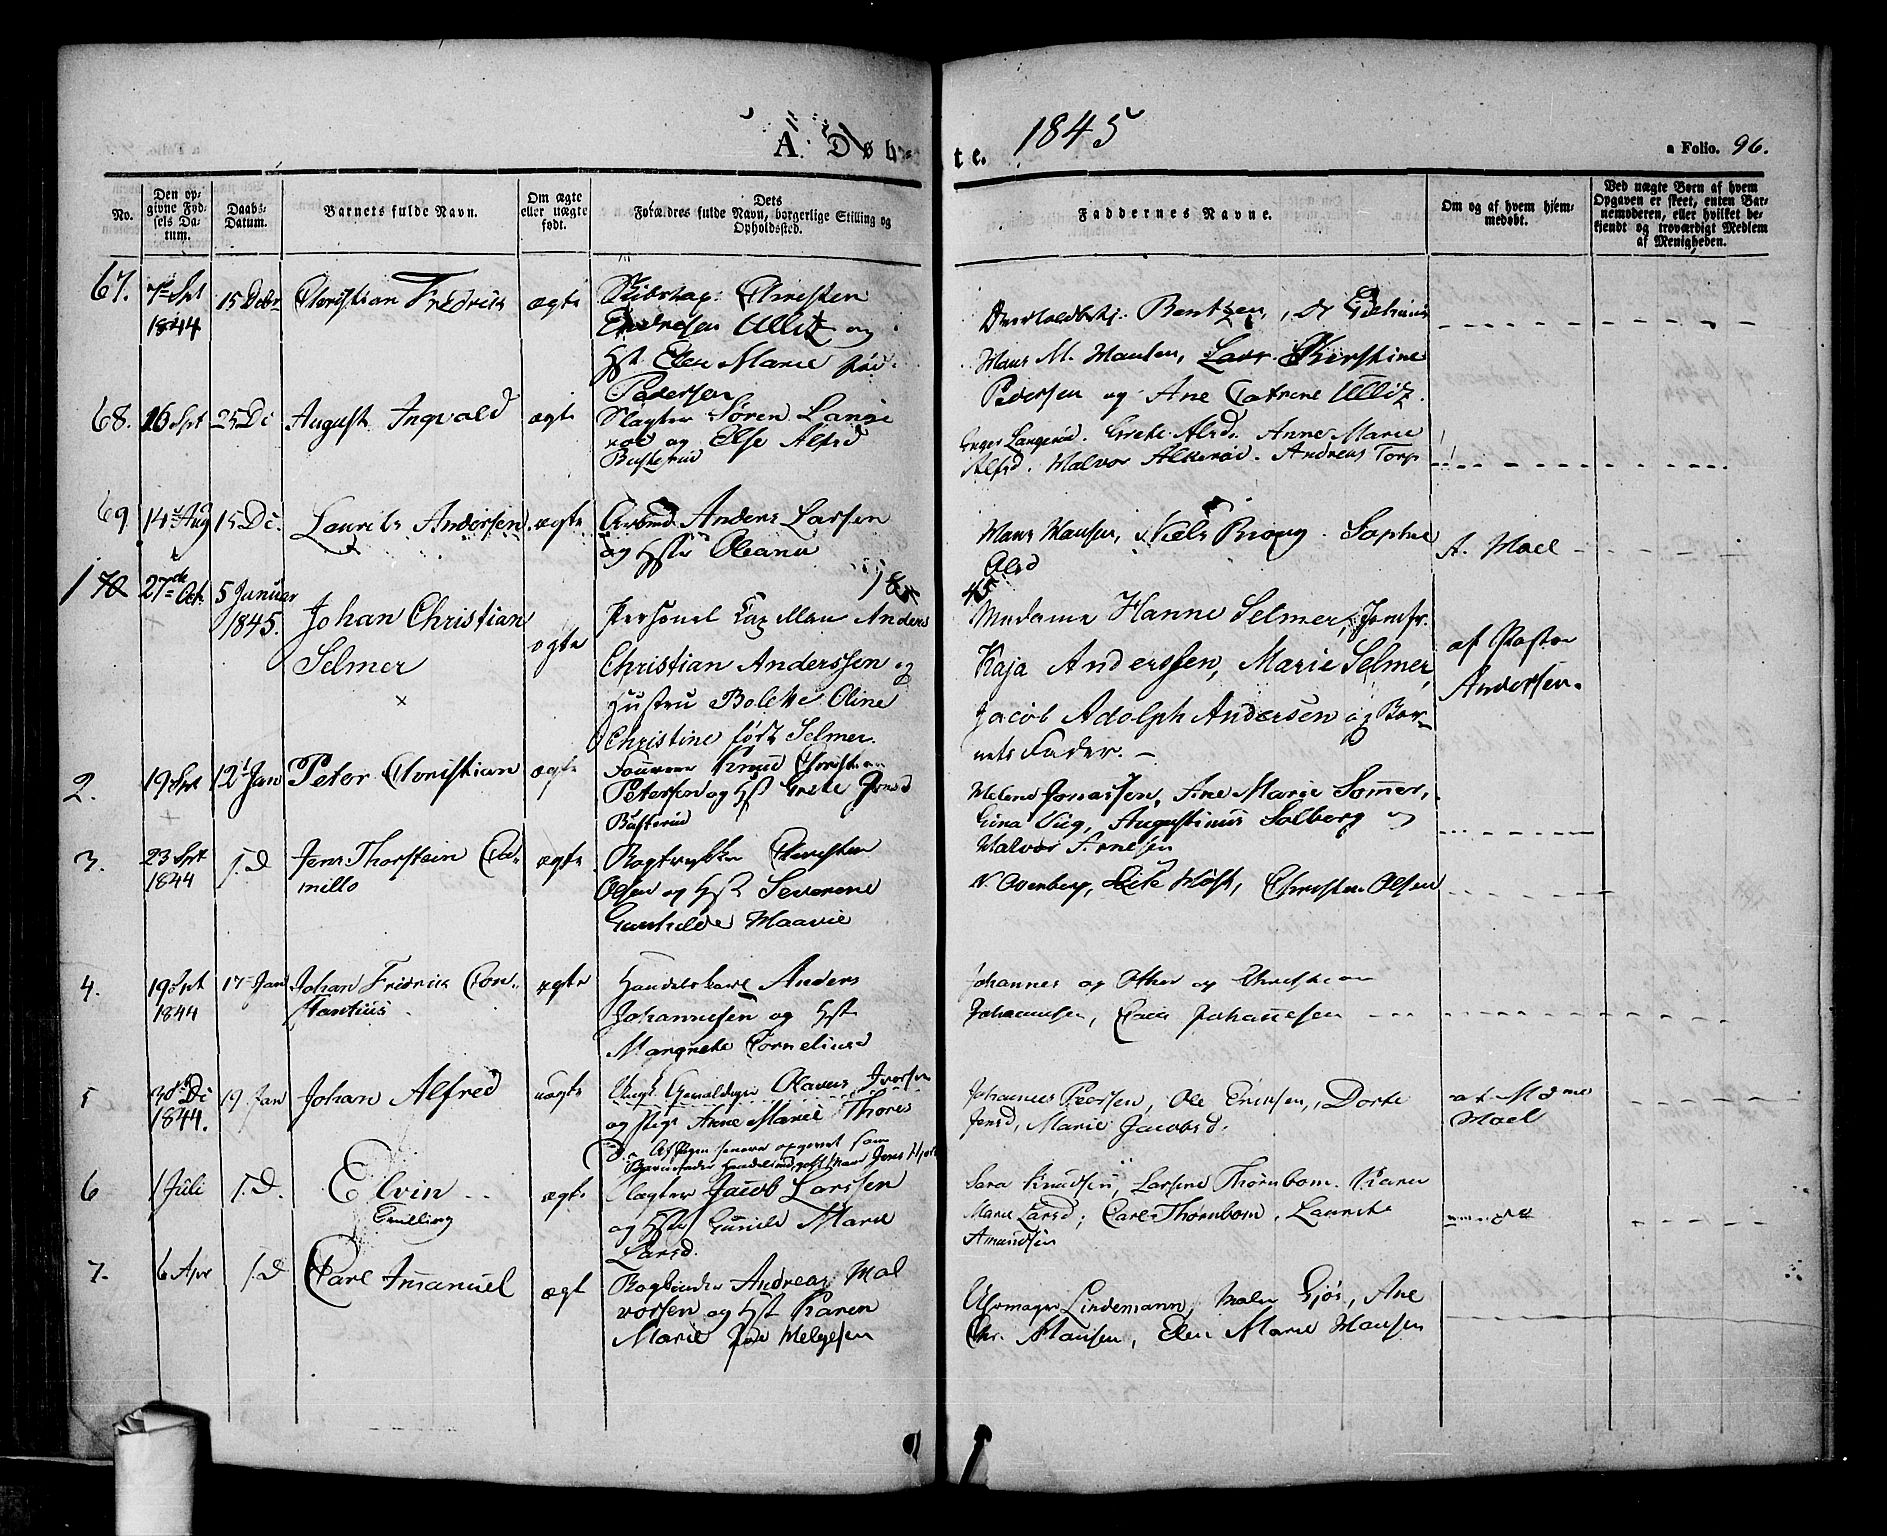 A. Døbte. 1845
a Folio. 96.
No.
Den opgivne Fødsels Datum.
Daabs-Datum.
Barnets fulde Navn.
Om ægte eller uægte født.
Dets Forældres fulde Navn, borgerlige Stilling og Opholdssted.
Faddernes Navne.
Om og af hvem hjemmedøbt.
Ved uægte Børn af hvem Opgaven er skeet, enten Barnemoderen, eller hvilket bekjendt og troværdigt Medlem af Menigheden.
67. 7de Spt 1844 15 Debr Christian Fredrik ægte
Skibskap: Christen
Andresen Ullitz og
Hst Elen Marie fød
Pedersen
Bentzen,
Hans M. Hansen, Kirstine
Pedersen og Ane Catrine Ullitz.
68. 16 Spt 25 Di August Ingvald ægte
Slagter Søren Lange
rød og Else Alfsd
Busterud
Langerød. Grete Alsd. Anne Marie
Alfsd. Halvor Alkerød. Andreas Torp
69 14de Aug 15 Di. Laurits Andersen ægte
Arbmd Anders Larsen
og Hstr Oleana
Hans Hansen, Niels Broug. Sophie
Olsd
A. Moel
1845
1 70 27de Oct. 5 Januar 1845. Johan Christian
Selmer
ægte
Personel Capellan Anders
Christian Anderssen og
Hustru Bolette Oline
Christine født Selmer.
Madame Hanne Selmer, Jomfr.
Kaja Anderssen, Marie Selmer,
Jacob Adolph Andersen og Bar-
nets Fader. –
af Pastor
Andersen.
2. 19 Spt 12 Jan Peter Christian ægte
Knud Christian
Petersen og Hst Grete Jonsd
Busterud
Helene Jonassen, Ane Marie Sommer,
Gina Viig, Augustinus Solberg og
Halvor Arnesen
3. 23 Spt 1844 s. D Jens Thorstein Ca-
millo
ægte
Bogtrykker Christen
Olsen og Hst Severine
Gunhilde Haavie
N. Overberg, Høst, Christen Olsen
4. 19 Spt 1844 17 Jan Johan Fredrik Con-
stantius
ægte
Handelsbarl Anders
Johannesen og Hst
Margrete Corneliusd
Johannes og Other og Christian
Johannesen, Johannesen
5 30 Di 1844. 19 Jan Johan Alfred uægte
Ungk. Olavus Iversen
og Pige Anne Marie Thores
Af Pigen senere opgivet som
Barnefader Jens
Johannes Peersen, Ole Ericksen, Dorte
Jensd, Marie Jacobsd.
af Mdme
Moel
6 1 Juli s. D. Elvin
Tvilling
ægte
Slagter Jacob Larssen
og Hstr Gunild Marie
Larsd.
Sara Knudsen, Larsine Thornbom. Karen
Marie Larsd, Carl Thornbom, Laurits
Amundsen
7. 6 Apr s. D Carl Imanuel ægt
Bogbinder Andreas Hal
vorsen og Hst Karen
Marie fød Helgesen
Uhrmager Lindemann, Maler Gjøs, Ane
Chr. Hansen, Elen Marie Hansen